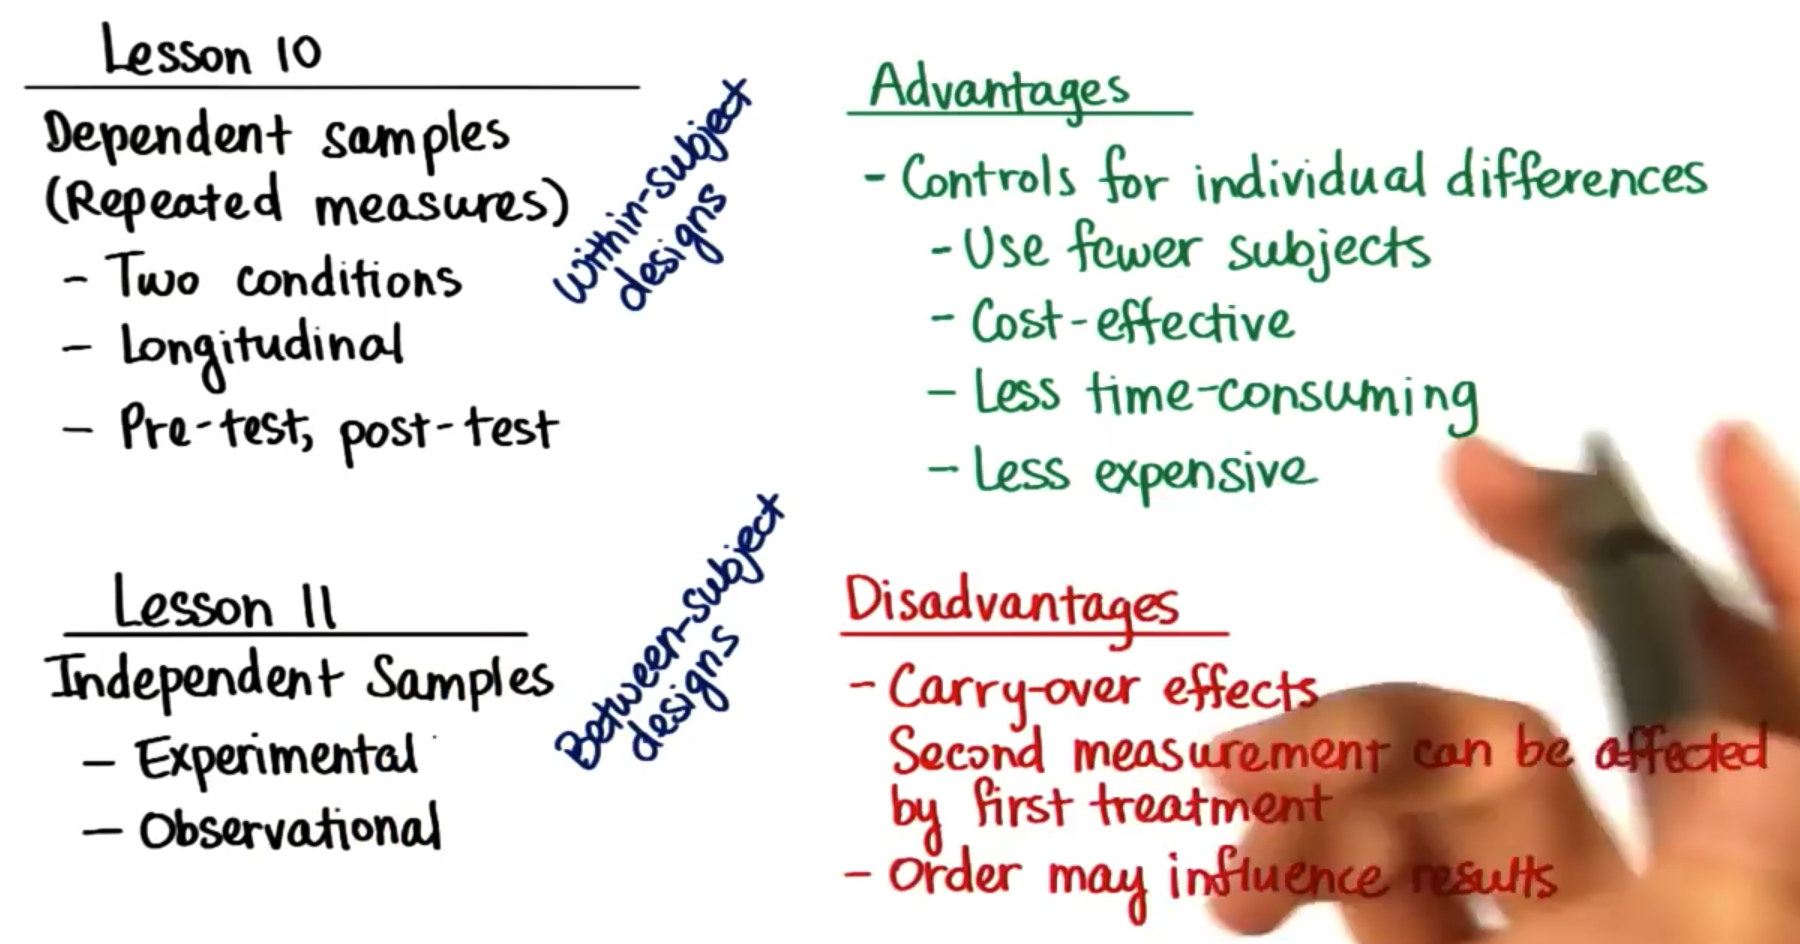 Lesson 10
Dependent samples
(Repeated measures)
- Two conditions
- Longitudinal
- Pre-test, post-test
Within-subject
designs
Lesson 11
Independent Samples
- Experimental
- Observational
Between-subject
designs
Advantages
- Controls for individual differences
- Use fewer subjects
- Cost-effective
- Less time-consuming
- Less expensive
Disadvantages
- Carry-over effects
Second measurement can be affected
by first treatment
- Order may influence results